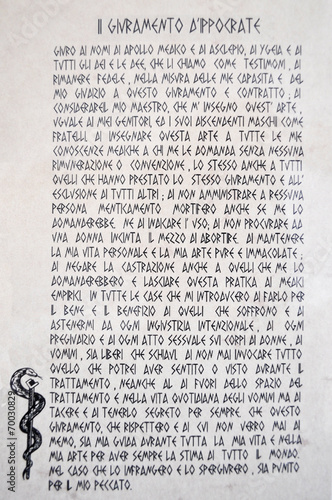 Il GIVRAMENTO D'IPPOCRATE
GIVRO AI NOMI DI APOLLO MEDICO E DI ASCLEPIO, DI YGEIA E DI
TVTTI GLI DEI E LE DEE, CHE LI CHIAMO COME TESTIMONI, DI
RIMANERE FEDELE, NELLA MISVRA DELLE MIE CAPASITA E DEL
MIO GIVDIZIO A QVESTO GIVRAMENTO E CONTRATTO; DI
CONSIDERAREL MIO MAESTRO, CHE M'INSEGNO QVEST'ARTE,
VGVALE AI MIEI GENITORI, ED I SVOI DISCENDENTI MASCHI COME
FRATELLI, DI INSEGNARE QVESTA ARTE A TVTTE LE MIE
CONOSCENZE MEDICHE A CHI ME LE DOMANDA SENZA NESSVNA
RIMVNERAZIONE O CONVENZIONE, LO STESSO ANCHE A TVTTI
QVELLI CHE HANNO PRESTATO LO STESSO GIVRAMENTO E ALL'
ESCLVSIONE DI TVTTI ALTRI; DI NON AMMINISTRARE A RESSVNA
PERSONA MENTICAMENTO MORTIFERO ANCHE SE ME LO
DOMANDEREBBE. NE DI INDICARE L'VSO; DI NON PROCVRARE DA
VNA DONNA INCINTA IL MEZZO DI ABORTIRE. DI MANTENERE
LA MIA VITA PERSONALE E LA MIA ARTE PVRE E IMMACOLATE;
DI NEGARE LA CASTRAZIONE ANCHE A QVELLI CHE ME LO
DOMANDEREBBERO E LASCIARE QVESTA PRATICA DI MEDICI
EMPIRICI. IN TVTTE LE CASE CHE MI INTRODVCERO DI FARLO PER
IL BENE E IL BENEFIZIO DI QVELLI CHE SOFFRONO E DI
ASTENERMI DA OGNI INGIVSTRIA INTENZIONALE, DI OGNI
PREGIVDIZIO E DI OGNI ATTO SESSVALE SVI CORPI DI DONNE, DI
VOMINI, SIA LIBERI CHE SCHIAVI. DI NON MAI INVOCARE TVTTO
QVELLO CHE POTREI AVER SENTITO O VISTO DVRANTE IL
TRATTAMENTO, NEANCHE AL DI FVORI DELLO SPAZIO DEL
TRATTAMENTO E NELLA VITA QVOTIDIANA DEGLI VOMINI MA DI
TACERE E DI TENERLO SEGRETO PER SEMPRE CHE QVESTO
GIVRAMENTO, CHE RISPETTERO E DI CVI NON VERRO MAI DI
MEMO, SIA MIA GVIDA DVRANTE TVTTA LA MIA VITA E NELLA
MIA ARTE PER AVER SEMPRE LA STIMA DI TVTTO IL MONDO.
NEL CASO CHE LO INFRANGERO E LO SPERGIVRERO, SIA PVNITO
PER IL MIO PECCATO.